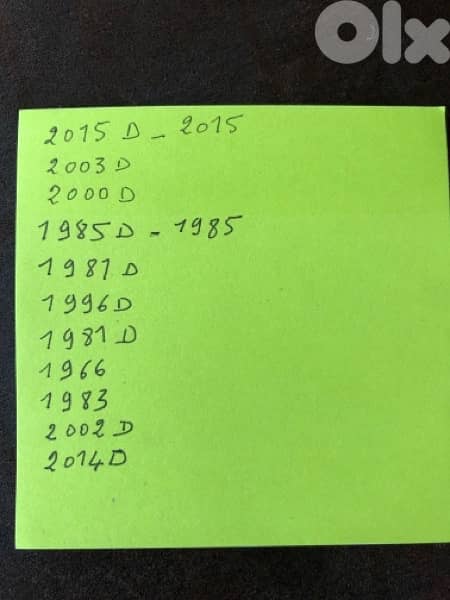 Olx
2015 D - 2015
2003 D
2000 D
1985 D - 1985
1987 D
1996 D
1981 D
1966
1983
2002 D
2014 D